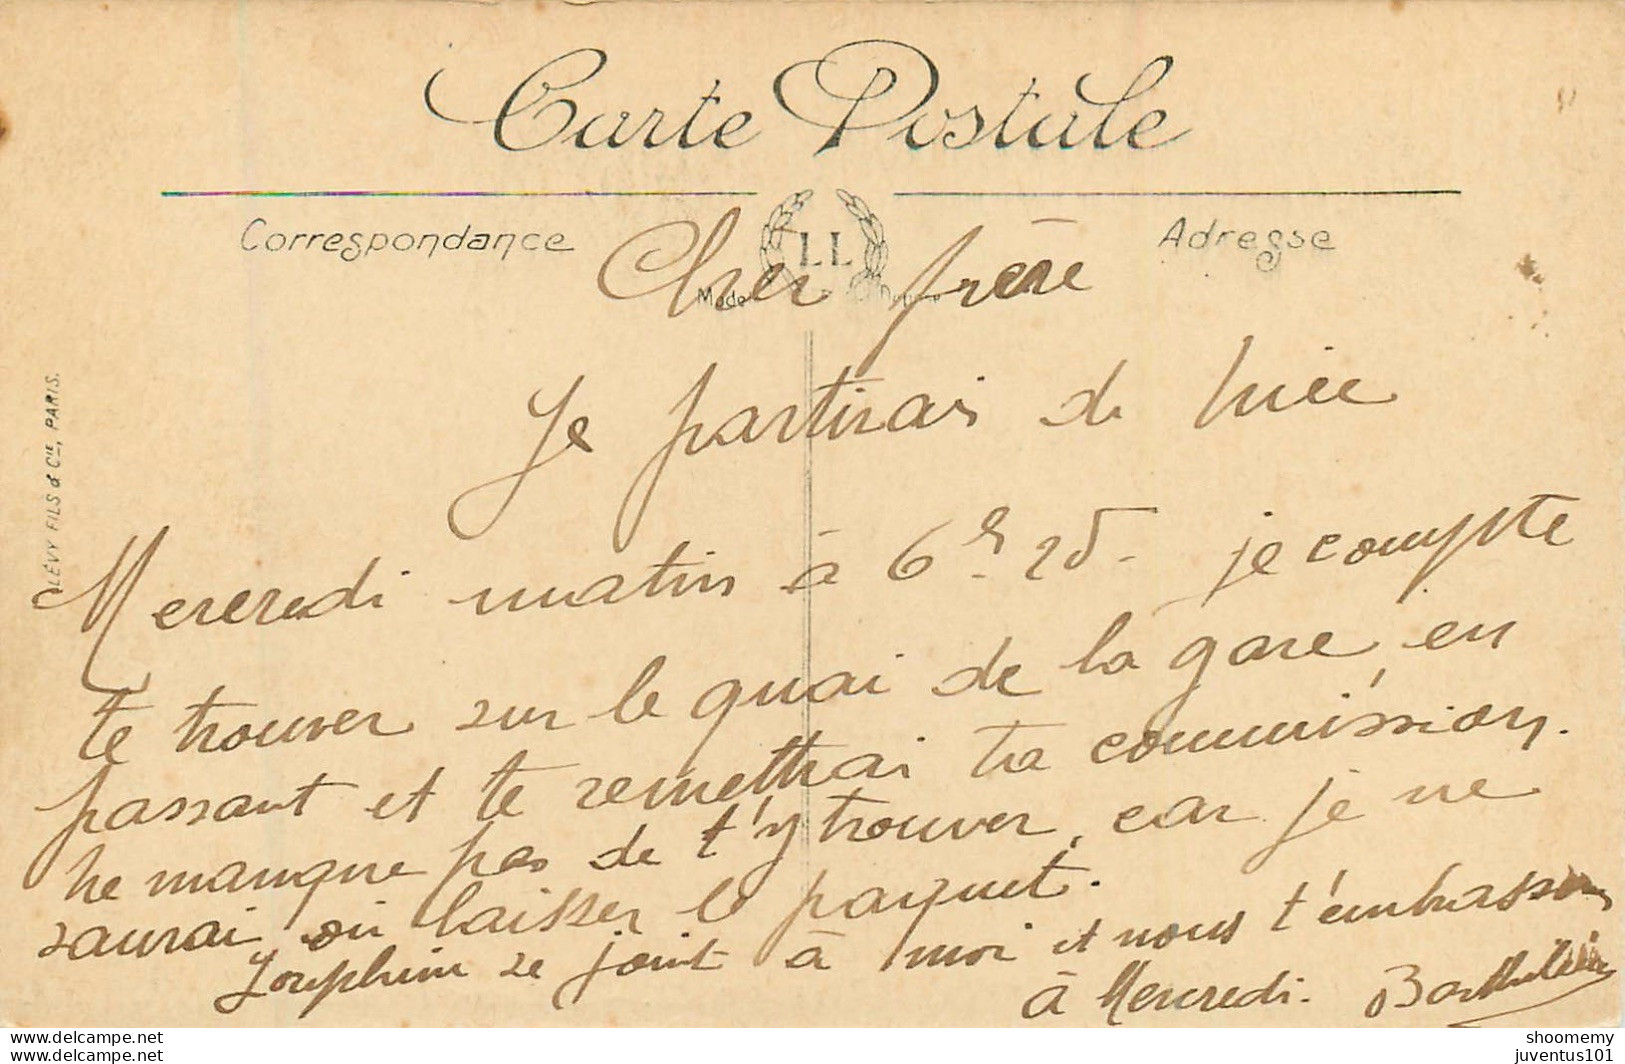 Carte Postale
Correspondance
LL
Adresse
Cher frère
Je partirai de
Mercredi matin à 6h. 25. je compte
te trouver sur le quai de la gare, en
passant et te remettrai ta commission.
Ne manque pas de t'y trouver, car je ne
saurai où laisser le paquet.
Josephine se joint à moi et nous t'embrassons
à Mercredi.
LÉVY FILS & Cie, PARIS.
shoomemy
juventus101